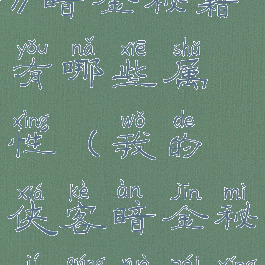 》暗金秘籍
yǒu nǎ xiē shǔ
有哪些属
xìng wǒ de
性（我的
xiá kè àn jīn mì
侠客暗金秘